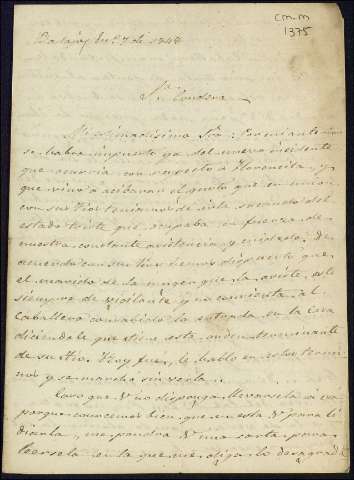 CM.M
1375
Badajoz En.º 7 de 1848
Sra. Condesa
Mi estimadísima Sra: Por mi ante
se habra impuesto ya del nuevo incidente
que ocurria con respecto á Florencita, y
que vino á acibarar el gusto que en union
con sus tios teniamos de verla saliendo del
estado triste que ocupaba en fuerza de
nuestra constante asistencia y cuidado. De
acuerdo con sus tios hemos dispuesto que
el marido de la muger que la asiste, esté
siempre de vigilante y no consienta al
Caballero consabido la entrada en la casa
diciendole que tiene esta orden terminante
de su tio. Hoy fue, le hablo en estos termi
nos y se marchó sin verla.
Caso que V. no disponga llevarsela á esa
porque conocemos bien que en esta V. para li
diarla, me pondra V. una carta para
leersela en la que me diga lo desagrada